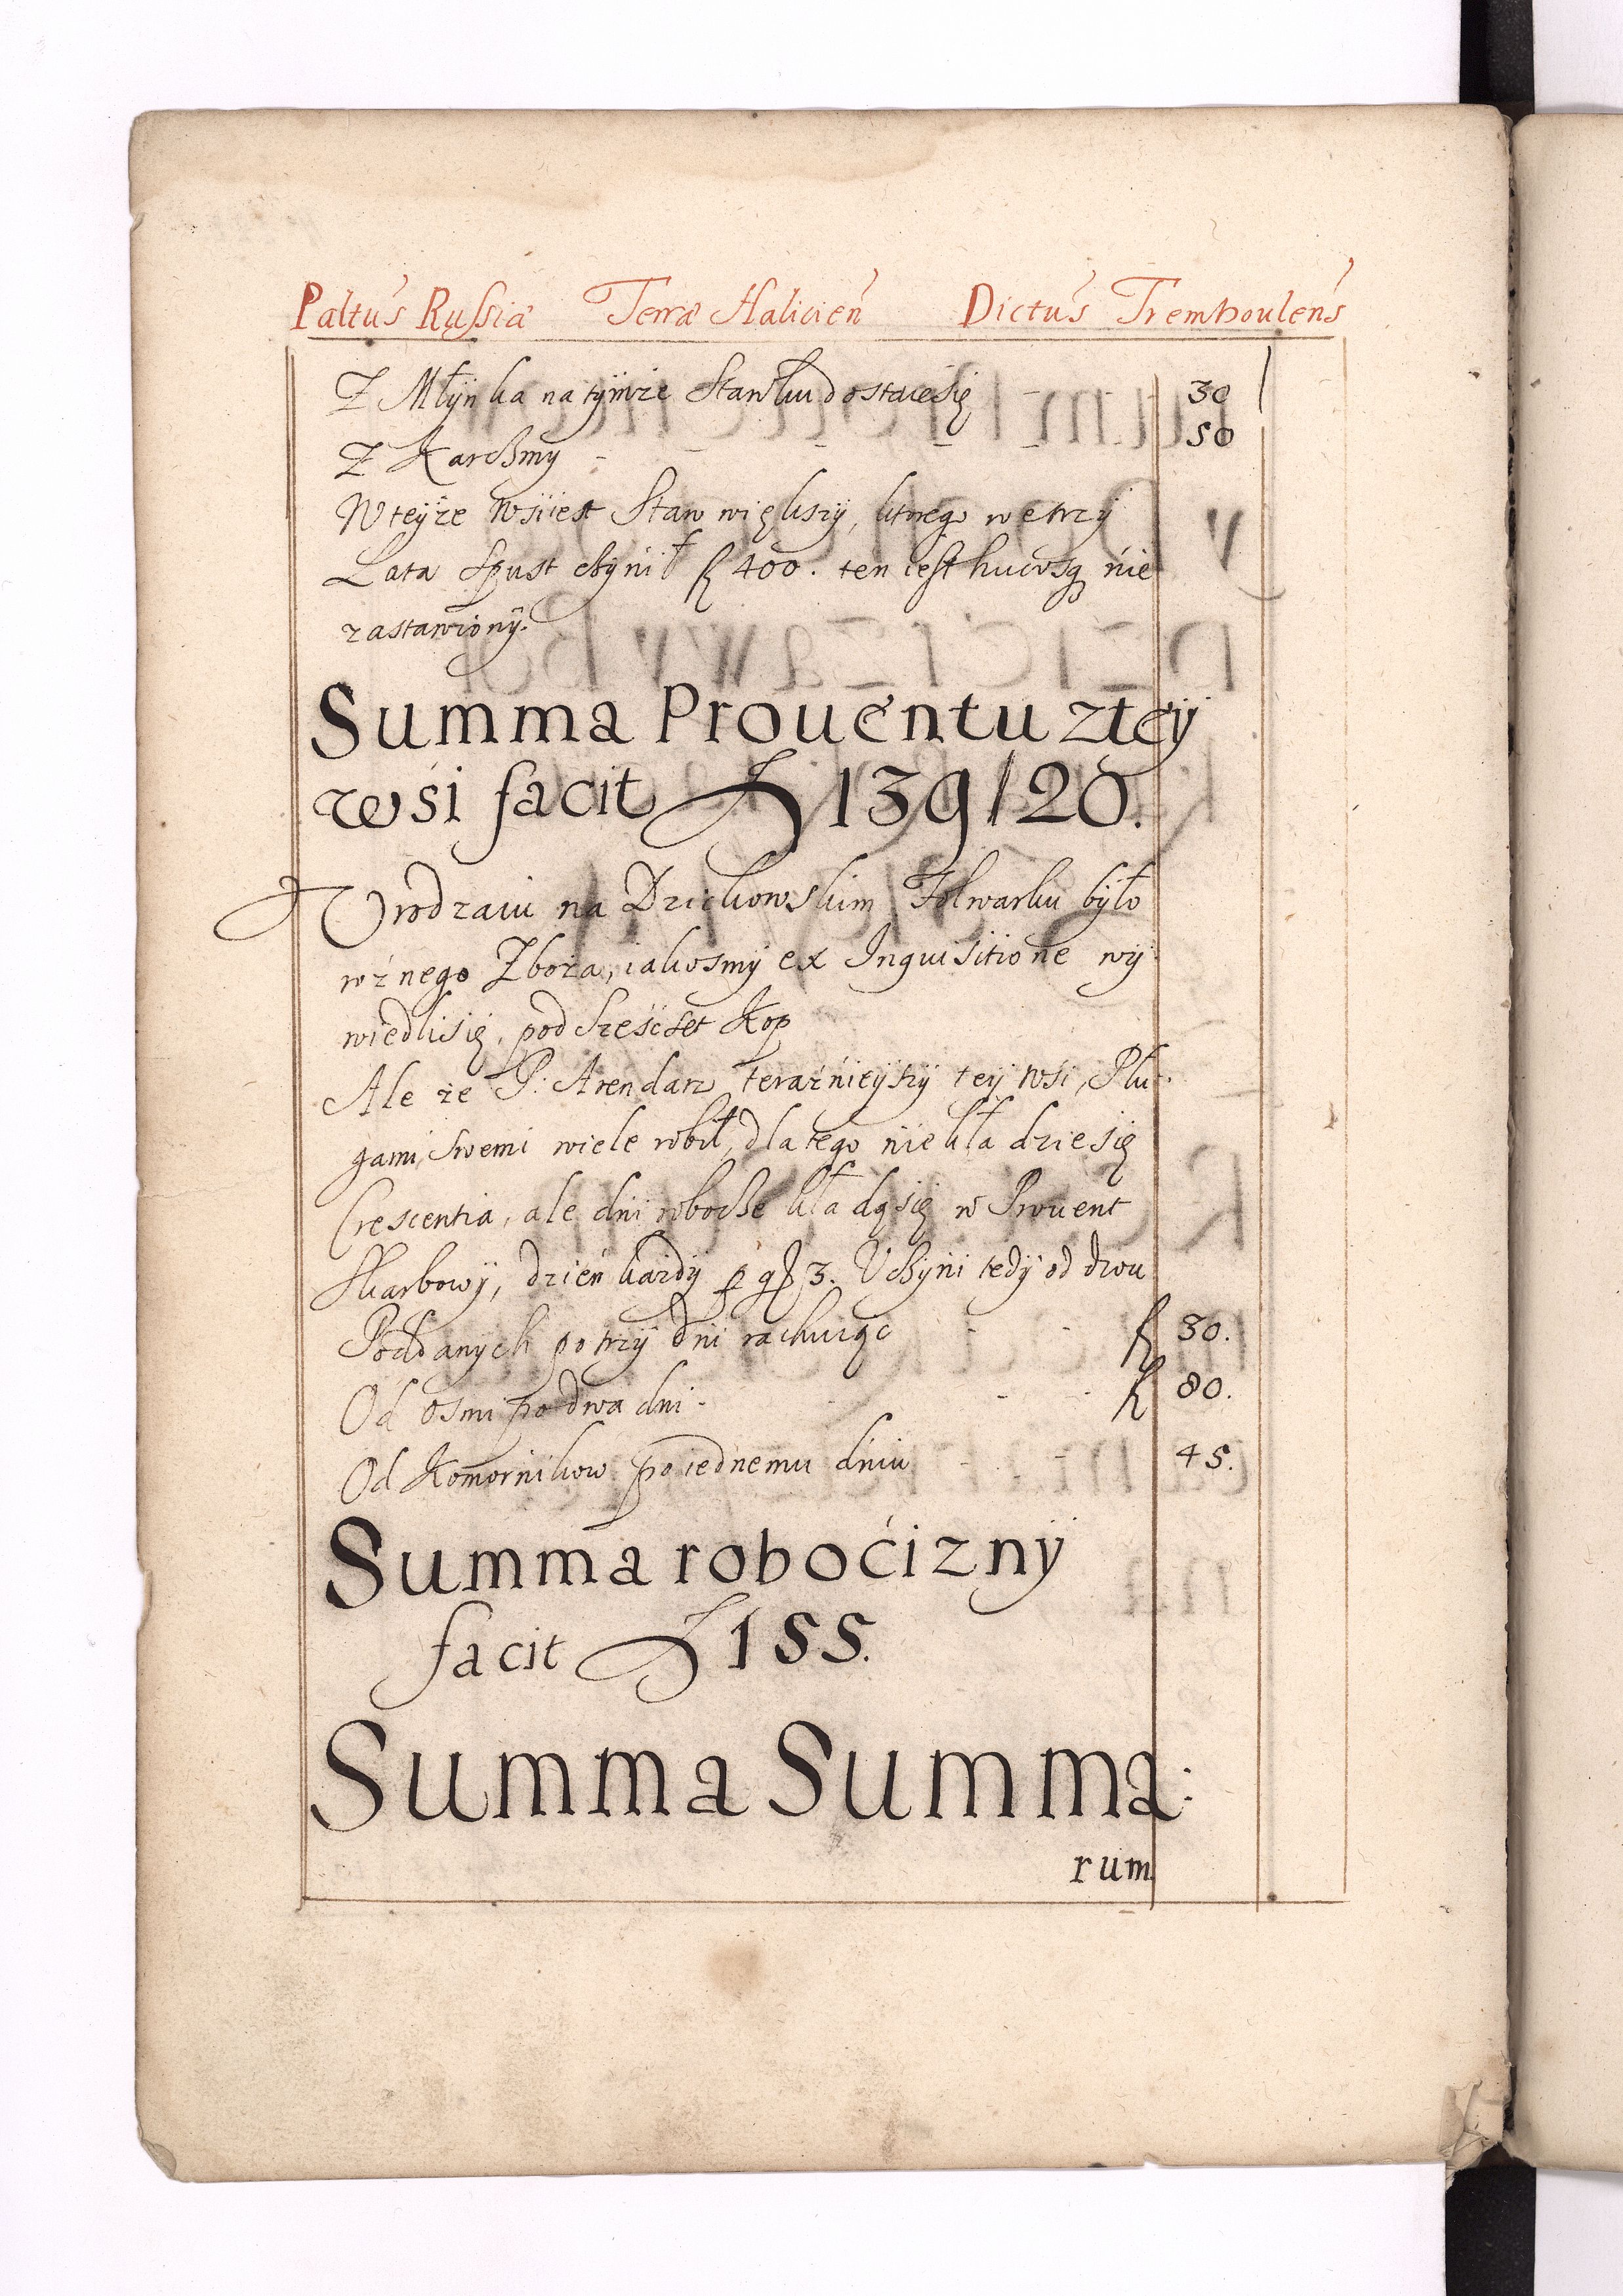 Paltus Russiæ Terræ Halicien Dictus Tremboulens
Z Młÿnka na tÿmże Stawku dostaiesię 30
Z Karczmy 50
W teÿże Wsi iest Staw większÿ, ktorego we trzÿ
Lata Spust czÿnił fl 400. ten iest hucusq nie
zastawionÿ.
Summa Prouentu z teÿ
wsi facit fl 139/20.
Vrodzaiu na Dzickowskim Folwarku bÿło
różnego Zboża, iakosmÿ ex Inquisitione wÿ
wiedlisię, pod Sześćset Kop
Ale że P: Arendarz teraźnieÿszÿ teÿ wsi, Płu
gami swemi wiele robił, dla tego nie kładzie się
Crescentia, ale dni robocze kładą się w Prouent
Skarbowÿ, dzień każdÿ p gr 3. Vczÿni tedÿ od dwu
Poddanych po trzÿ dni rachuiąc fl 30.
Od osmi po dwa dni fl 80.
Od Komornikow po iednemu dniu 45.
Summa roboćiznÿ
facit fl 155.
Summa Summa:
rum